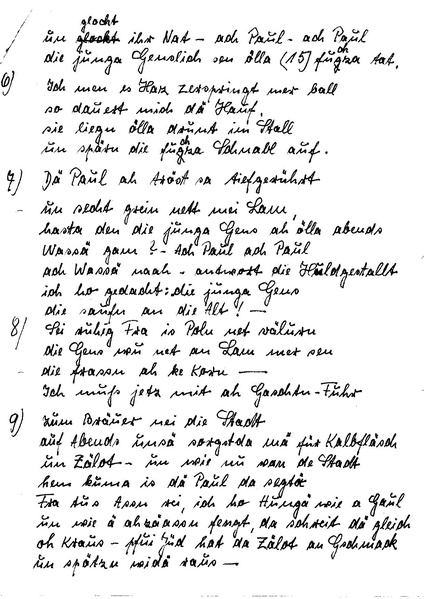 glockt
un glockt ihr Nat - ach Paul - ach Paul
die junga Genslich sen ölla (15) fuchza tat.
6) Ich men es Haz zerspringt mer ball
so dauert mich dä Hauf,
sie liegn ölla drunt im Stall
un spärn die fuchza Schnabl auf.
7) Dä Paul ah tröst sa tiefgerührt
un secht grein nett mei Lam,
hasta den die junga Gens ah ölla abends
Wassä gam? - Ach Paul ach Paul
ach Wassä naah - antwort die Huldgestallt
ich ho gedacht: die junga Gens
die saufn an die Alt! -
8) Sei ruhig Fra is Poln net välurn
die Gens wu net an Lam mer sen
die frassn ah ke Korn -
Ich muß jetz mit ah Gaschtn-Fuhr
9) zum Bräuer nei die Stadt
auf Abends unsä sorgstda mä für Kalbfläsch
un Zälot - un wie nu von de Stadt
hem kuma is dä Paul da segtä
Fra tus Assn rei, ich ho Hungä wie a Gaul
un wie ä ahzäassn fengt, da schreit dä gleich
oh Kraus - pfui Jud hat da Zälot an Gschmack
un spätzn widä raus -